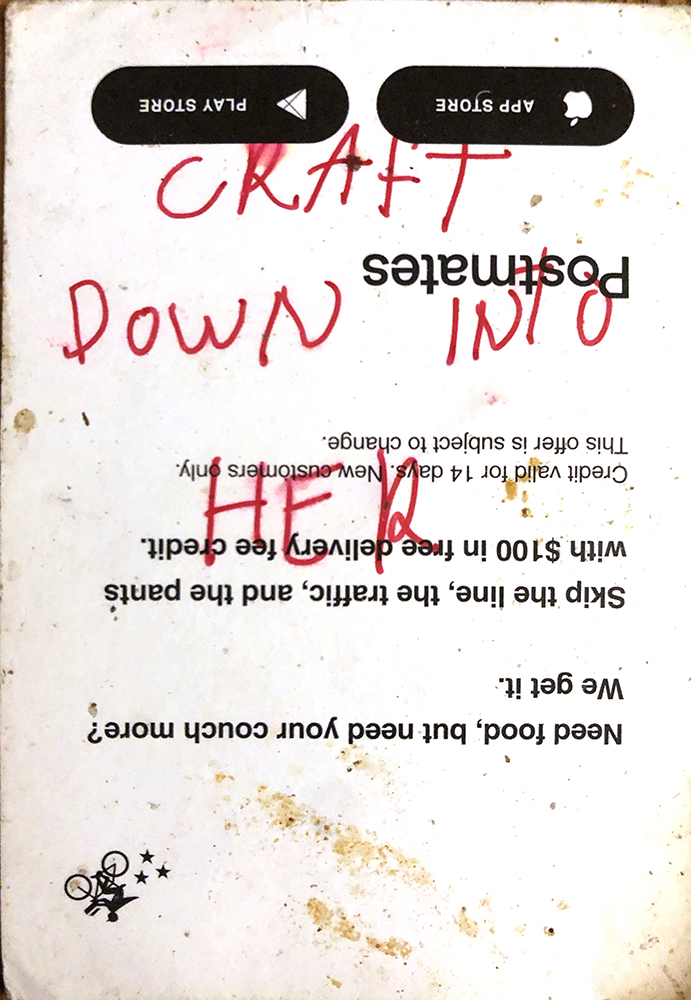 CRAFT
DOWN INTO
HER
Need food, but need your couch more?
We get it.
Skip the line, the traffic, and the pants
with $100 in free delivery fee credit.
Credit valid for 14 days. New customers only.
This offer is subject to change.
Postmates
APP STORE
PLAY STORE